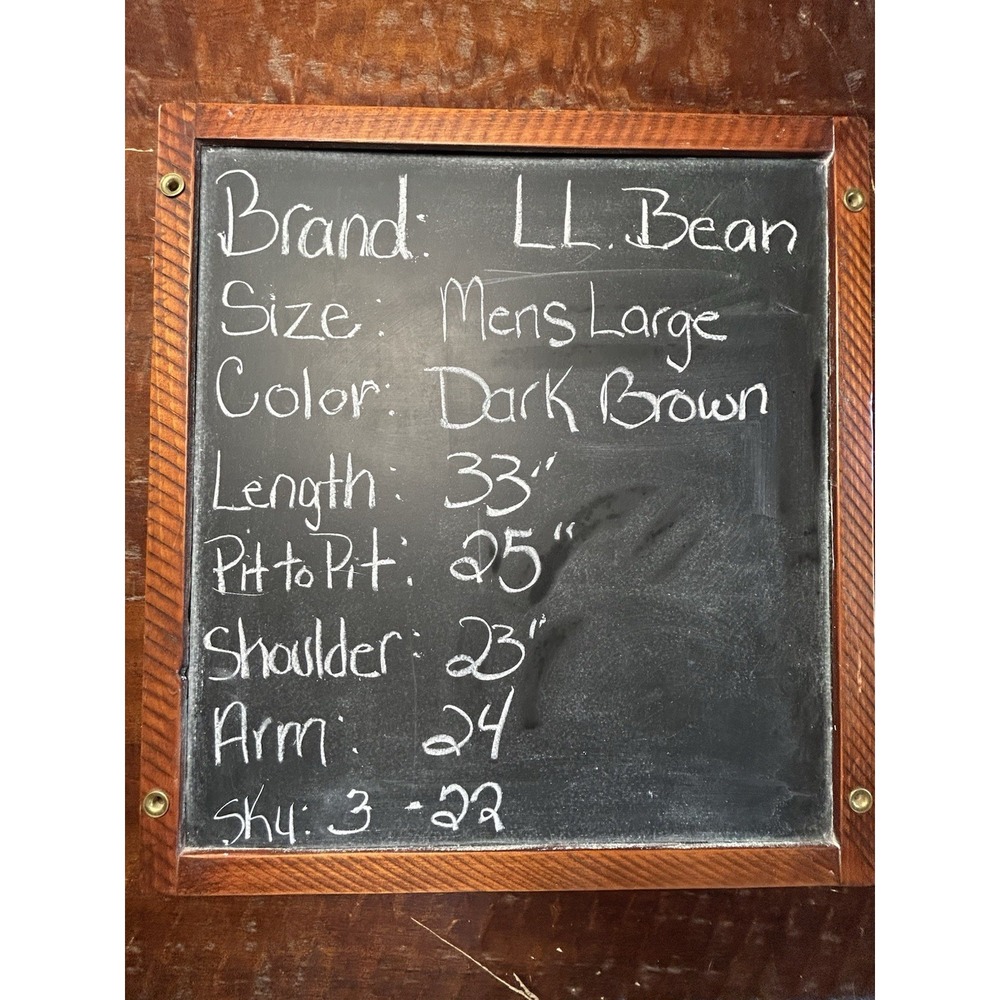 Brand: LL. Bean
Size: Mens Large
Color: Dark Brown
Length: 33"
Pit to Pit: 25"
Shoulder: 23"
Arm: 24
SKU: 3 -22